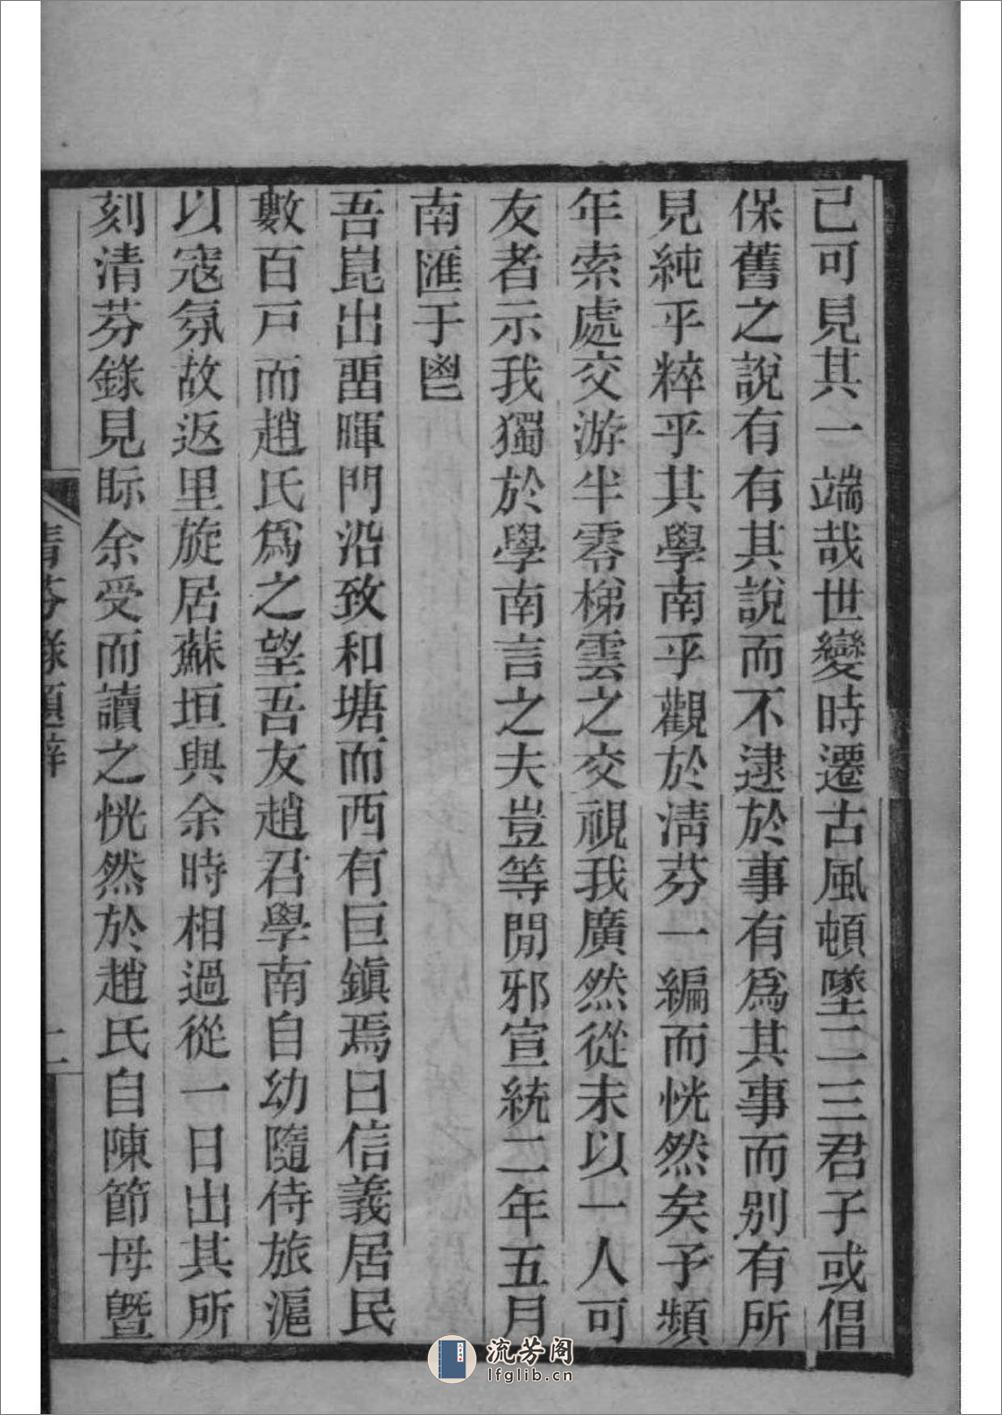 己可見其一端哉世變時遷古風頓墜二三君子或倡
保舊之說有有其說而不逮於事有爲其事而别有所
見純乎粹乎其學南乎觀於清芬一編而恍然矣予頻
年索處交游半零梯雲之交視我廣然從未以一人可
友者示我獨於學南言之夫豈等閒邪宣統二年五月
南匯于鬯
吾崑出畱暉門沿致和塘而西有巨鎭焉曰信義居民
數百戸而趙氏爲之望吾友趙君學南自幼隨侍旅滬
以寇氛故返里旋居蘇垣與余時相過從一日出其所
刻清芬錄見眎余受而讀之恍然於趙氏自陳節母曁
清芬錄題辭
二
流芳阁
lfglib.cn